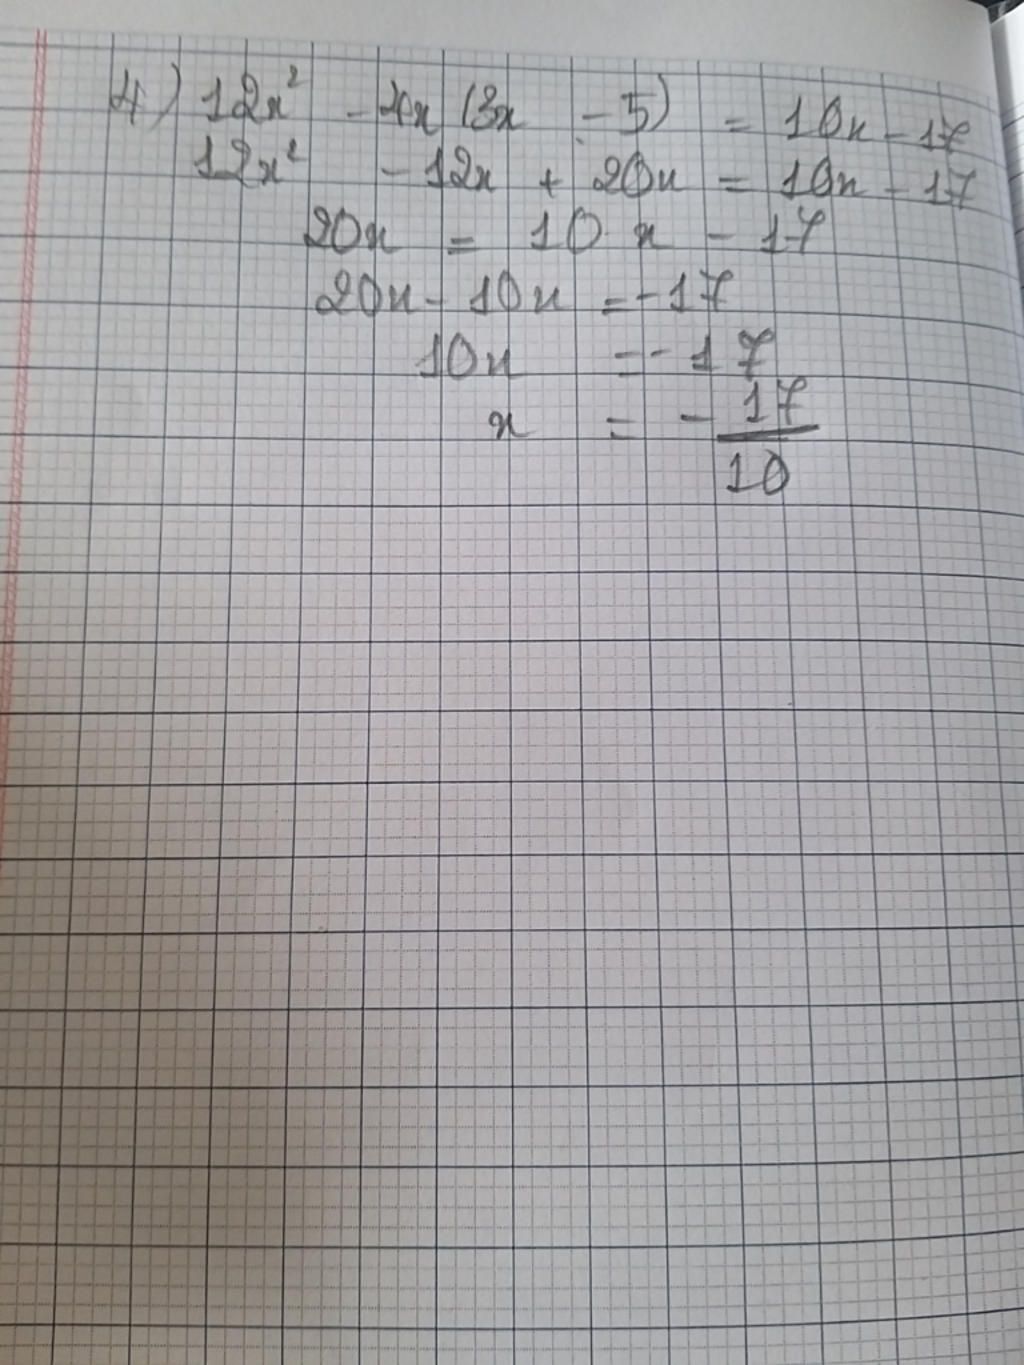 4) 12x² - 4x (3x - 5) = 10x - 17
12x² - 12x + 20x = 10x - 17
20x = 10 x - 17
20x - 10x = -17
10x = - 17
x = - 17/10